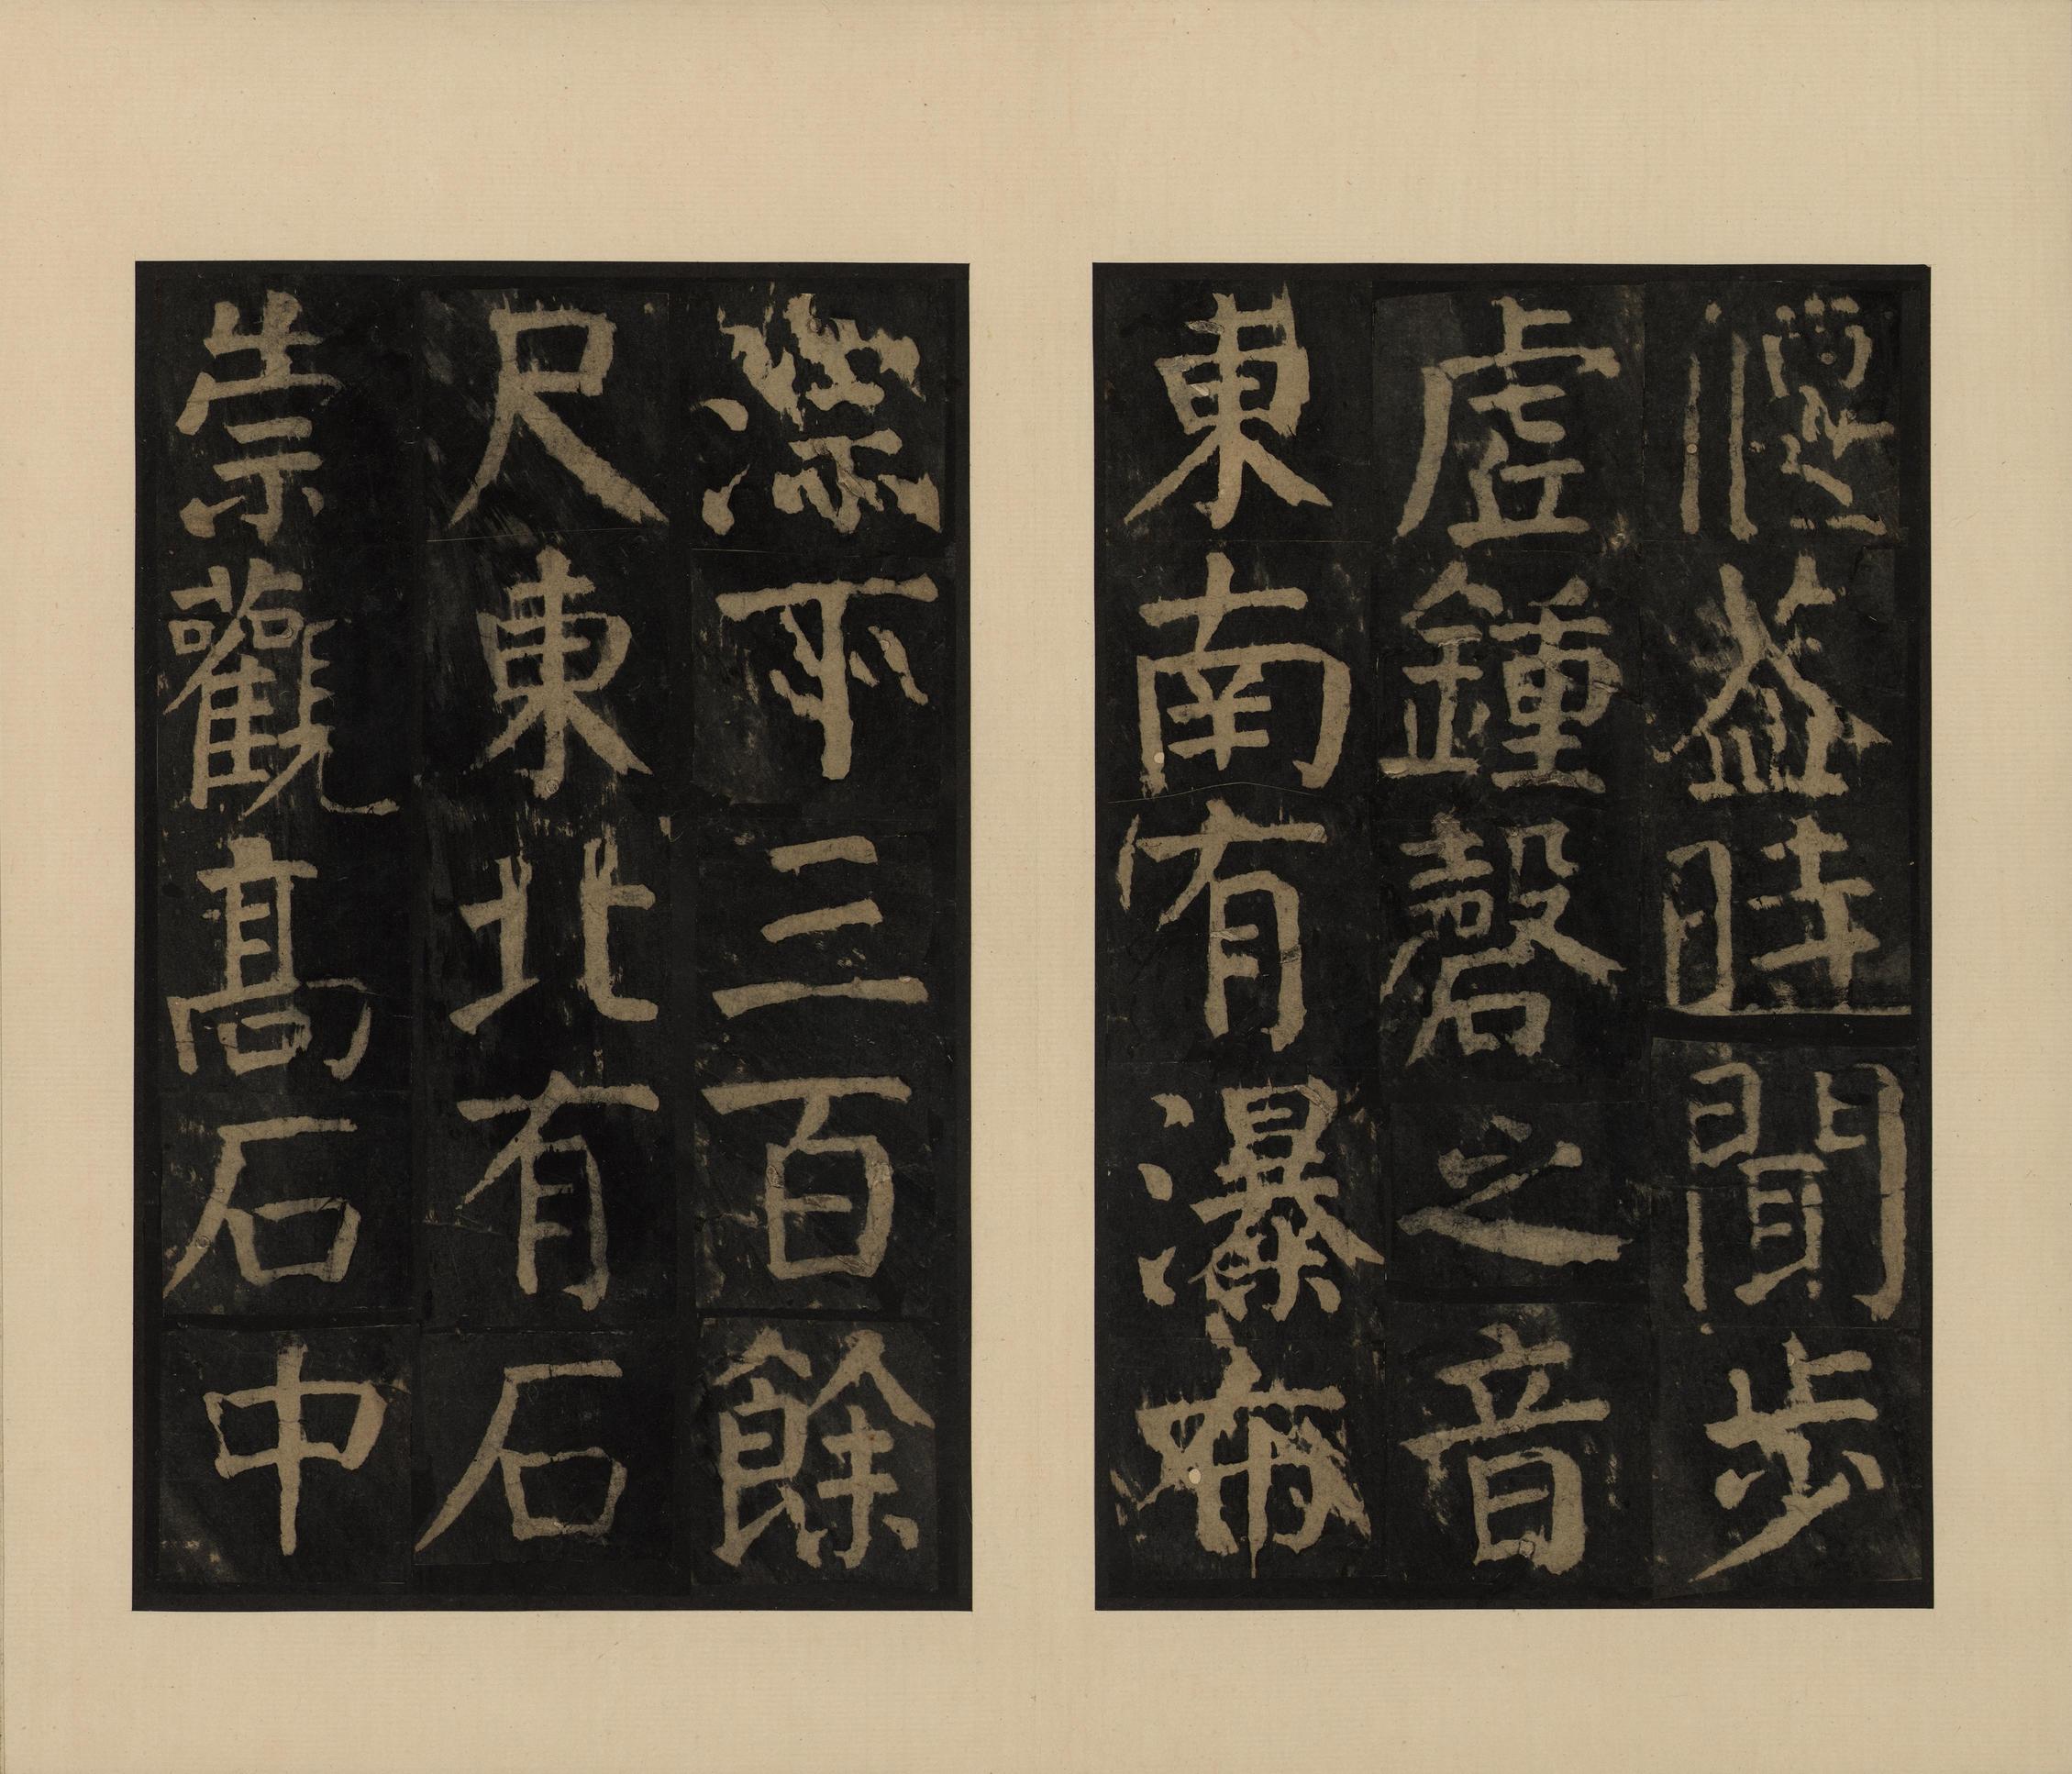 偃葢時聞步
虛鍾磬之音
東南有瀑布
淙下三百餘
尺東北有石
崇觀高石中